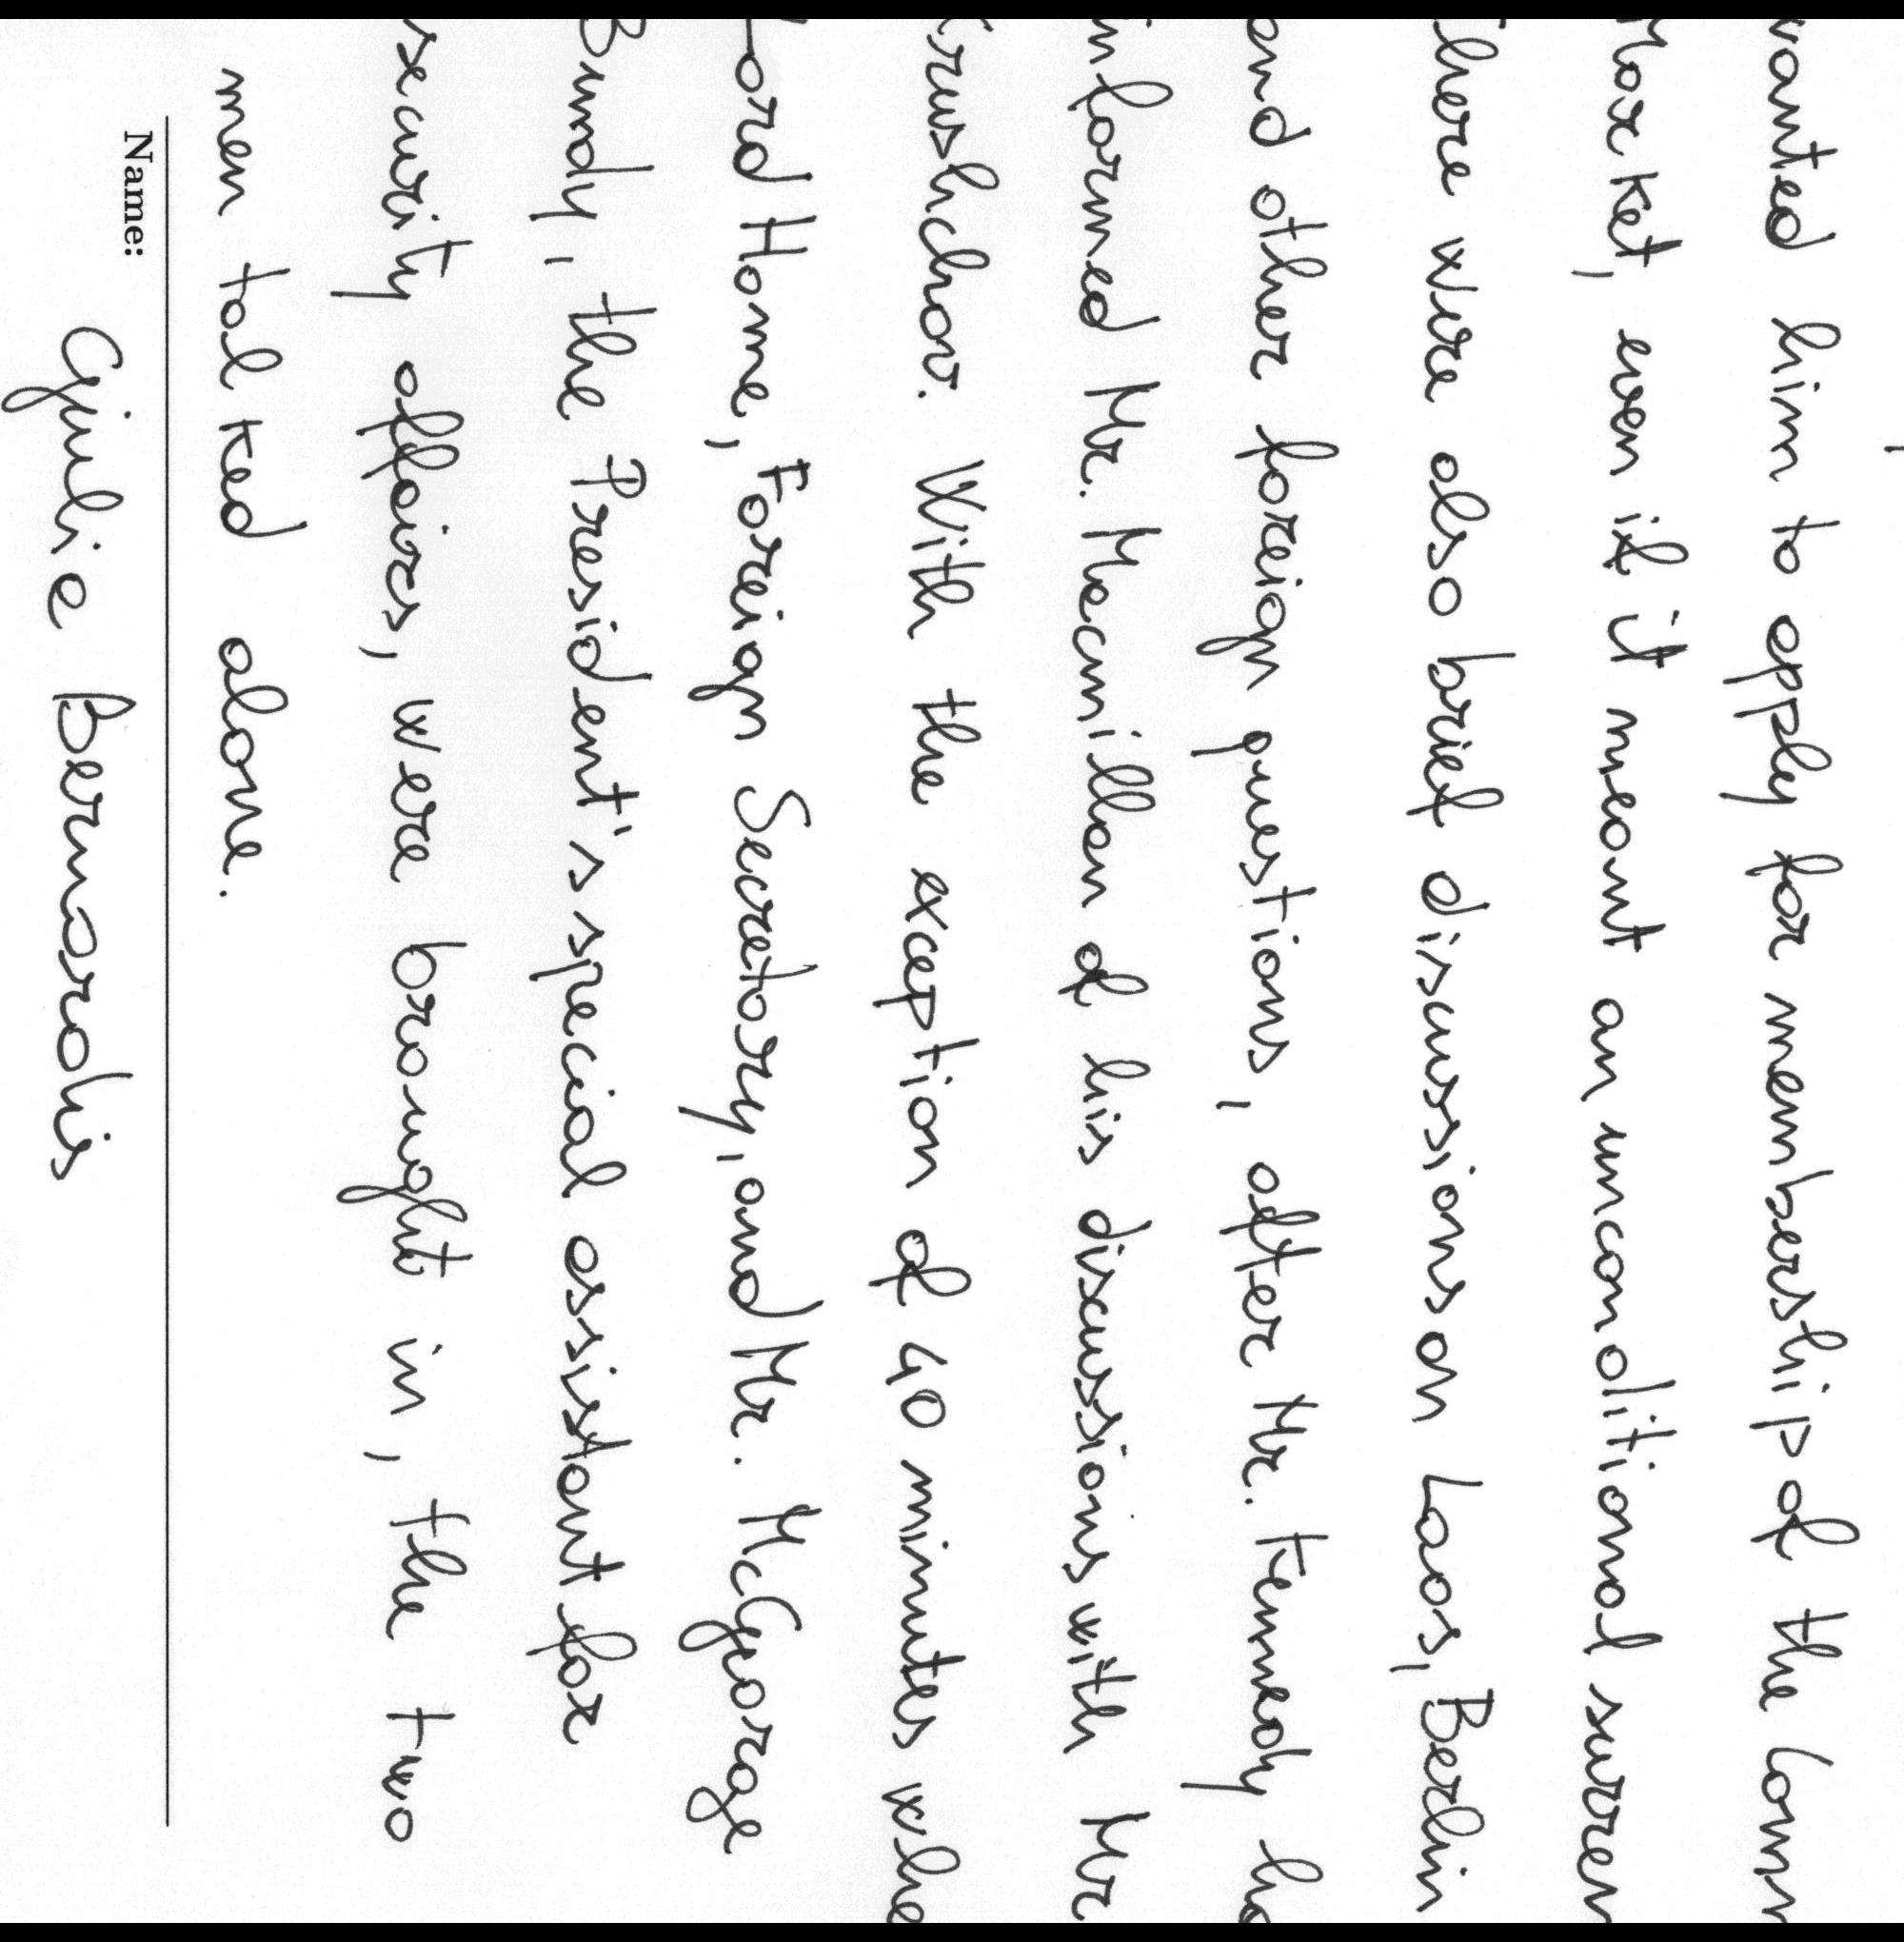 wanted him to apply for membership of the Comm
Market, even if it meant an unconditional surren
There were also brief discussions on Laos, Berlin
and other foreign questions, after Mr. Kennedy ha
informed Mr. Macmillan of his discussions with Mr
Krushchov. With the exception of 40 minutes whe
Lord Home, Foreign Secretary, and Mr. McGeorge
Bundy, the President's special assistant for
security affairs, were brought in, the two
men talked alone.
Name:
Gjulie Bernarolis